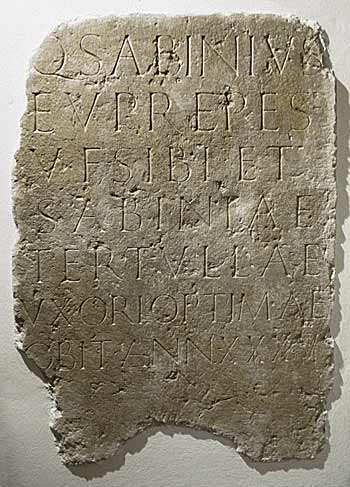 Q SABINIVS
EVPREPES
V F SIBI ET
SABINIAE
TERTVLLAE
VXORI OPTIMAE
OBIT ANN